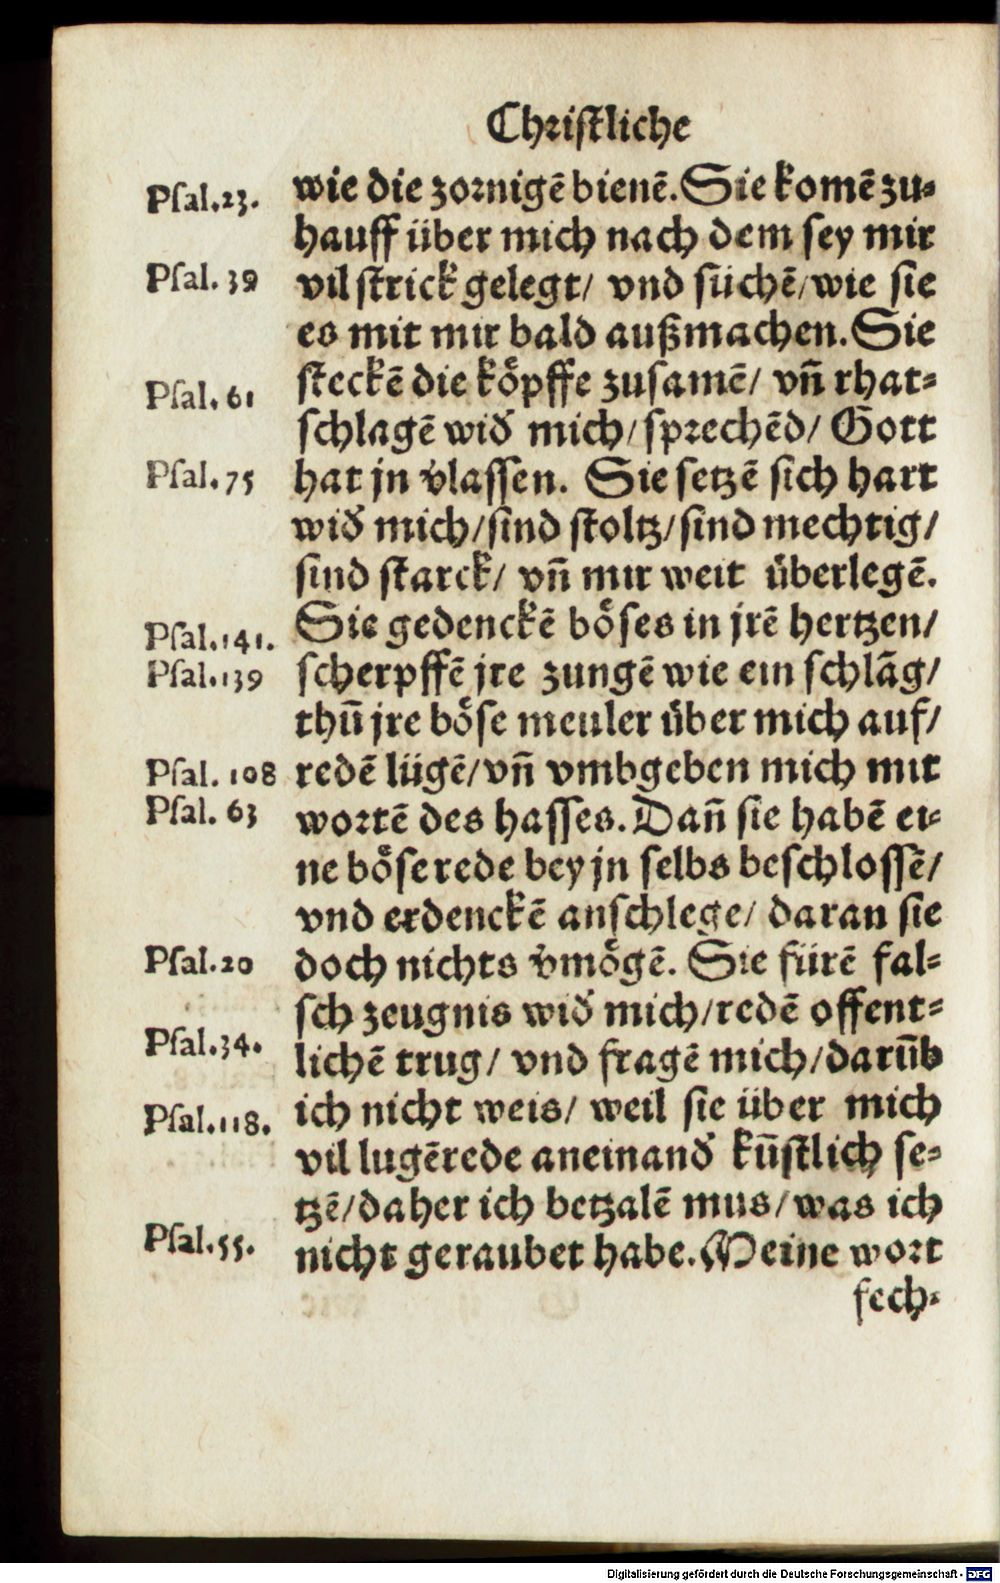 Christliche
Psal.23. wie die zornigẽ bienẽ. Sie komẽ zu-
hauff über mich nach dem sey mir
Psal. 39 vil strick gelegt/ vnd sůchẽ/wie sie
es mit mir bald außmachen. Sie
Psal. 61 steckẽ die koͤpffe zusamẽ/ vñ rhat-
schlagẽ wid' mich/sprechẽd/ Gott
Psal.75 hat jn v'lassen. Sie setzẽ sich hart
wid' mich/sind stoltz/sind mechtig/
sind starck/ vñ mir weit überlegẽ.
Psal.141. Sie gedenckẽ boͤses in jrẽ hertzen/
Psal.139 scherpffẽ jre zungẽ wie ein schlãg/
thũ jre boͤse meuler über mich auf/
Psal. 108 redẽ lügẽ/vñ vmbgeben mich mit
Psal. 63 wortẽ des hasses. Dañ sie habẽ ei-
ne boͤse rede bey jn selbs beschlossẽ/
vnd erdenckẽ anschlege/ daran sie
Psal.20 doch nichts v'moͤgẽ. Sie fürẽ fal-
sch zeugnis wid' mich/redẽ offent-
Psal.34. lichẽ trug/ vnd fragẽ mich/darũb
ich nicht weis/ weil sie über mich
Psal.118. vil lugẽrede aneinand' kũstlich se-
tzẽ/daher ich betzalẽ mus/was ich
Psal.55. nicht geraubet habe. Meine wort
fech-
Digitalisierung gefördert durch die Deutsche Forschungsgemeinschaft - DFG